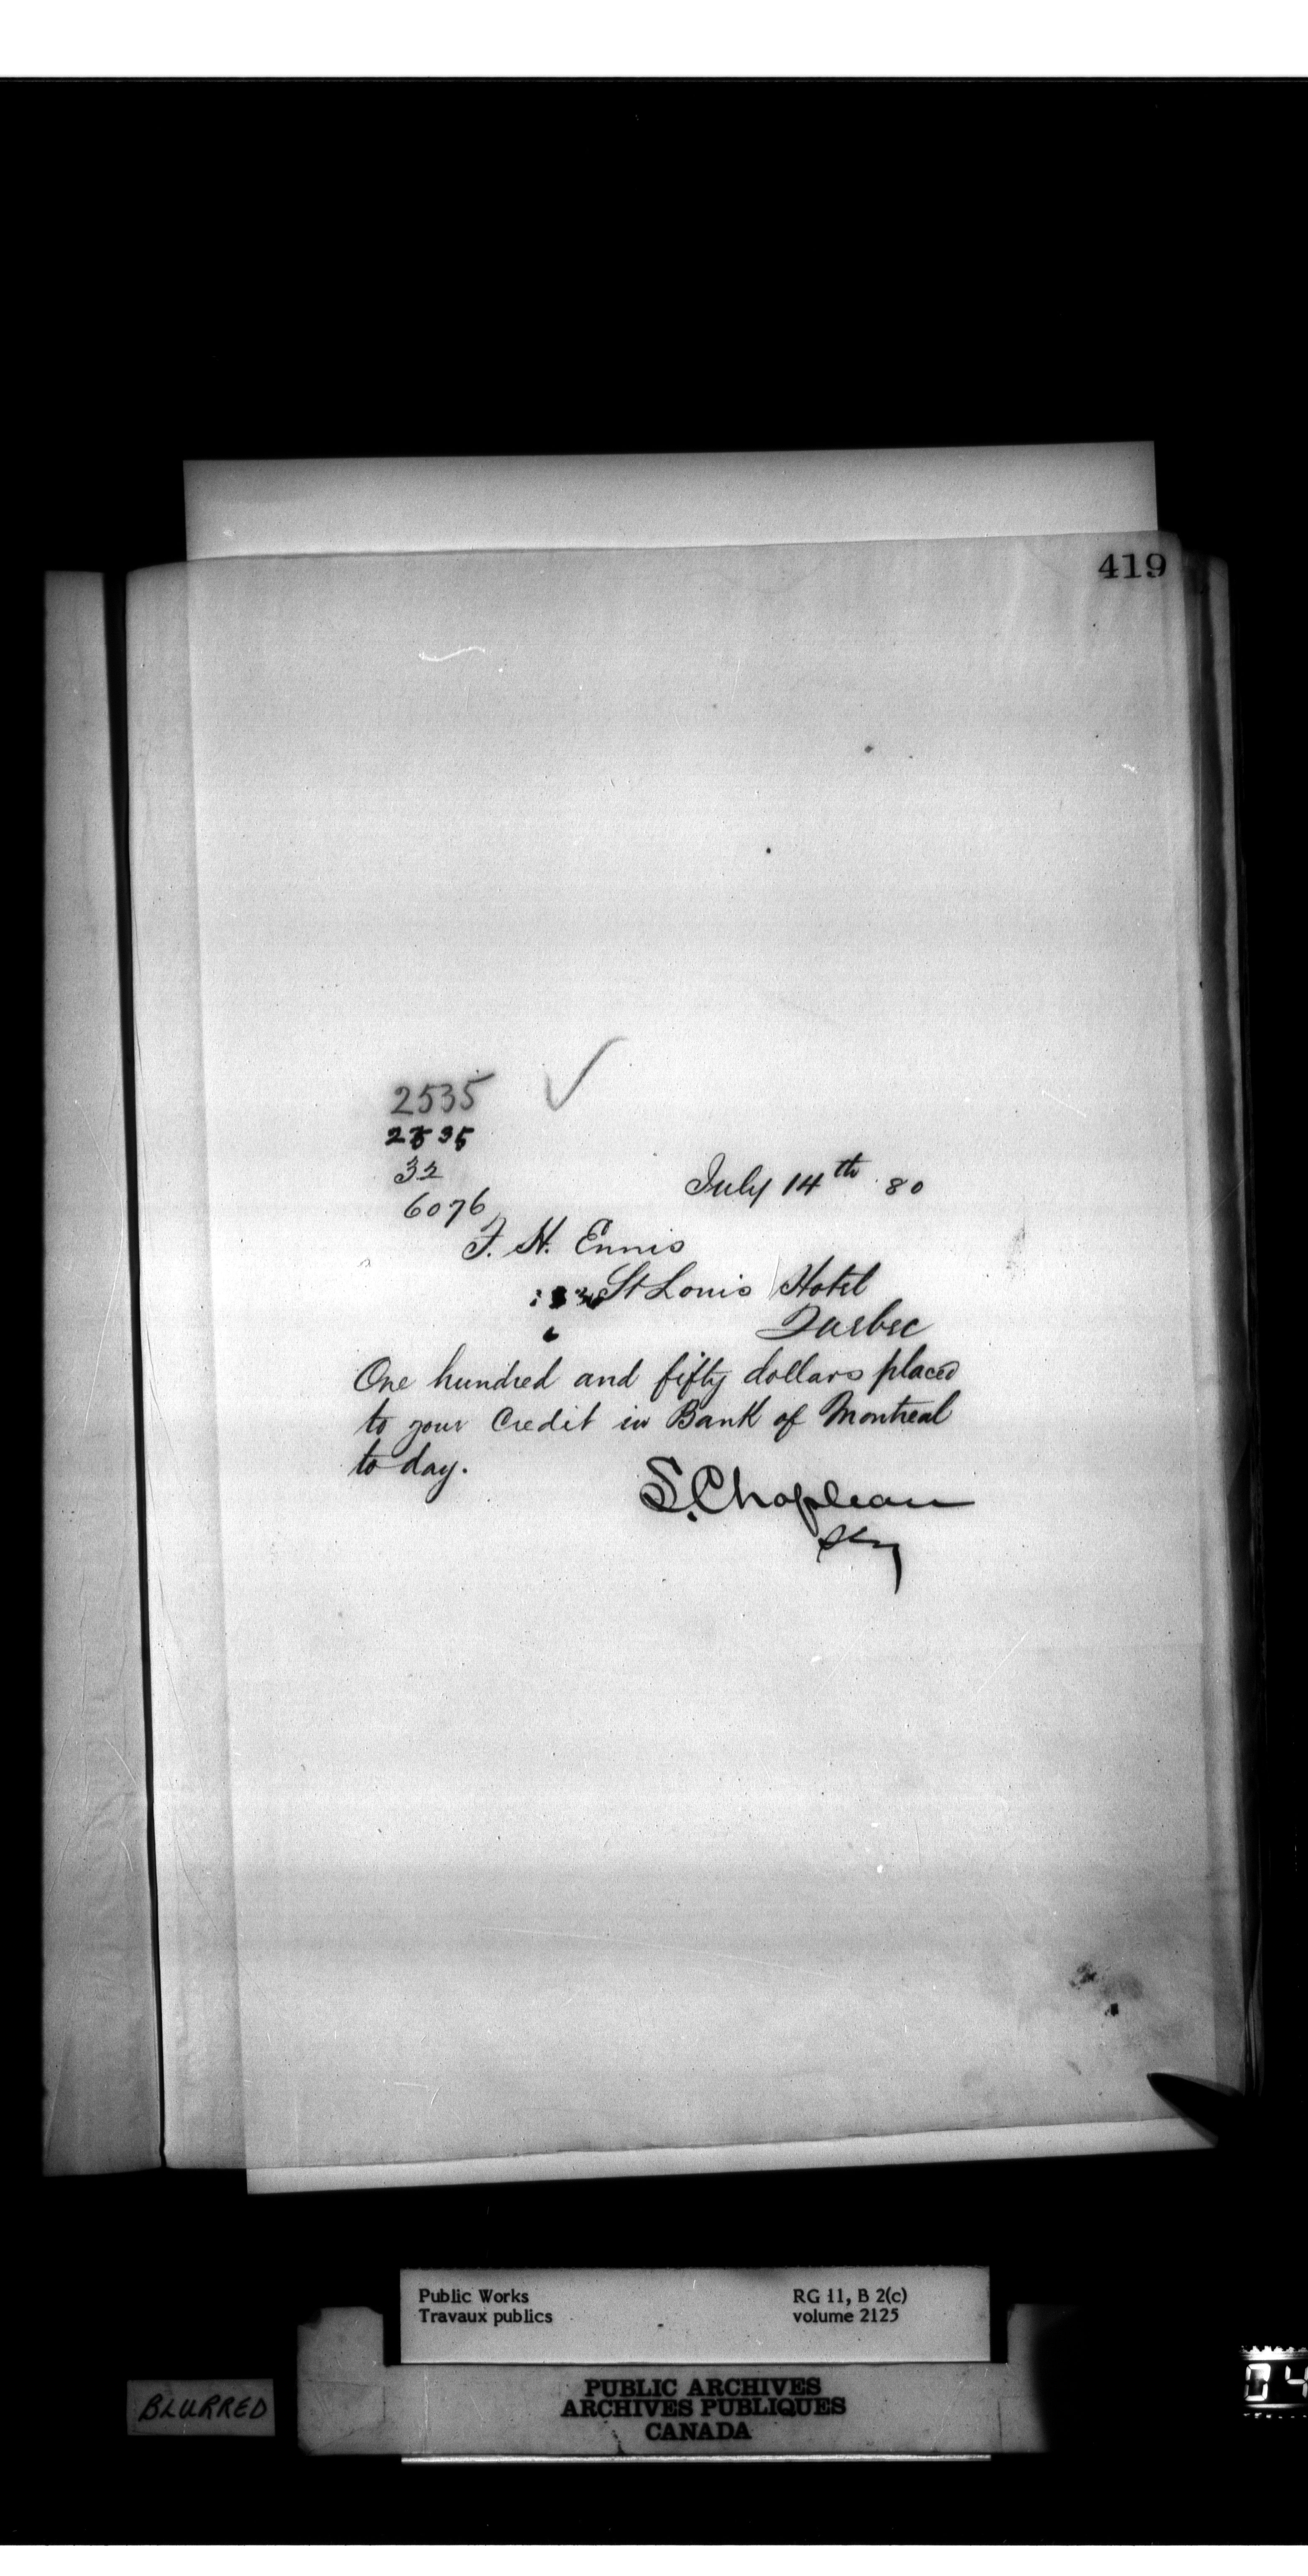 419
2535
2535
32
6076
July 14th 80
F. H. Ennis
St Louis Hotel
Quebec
One hundred and fifty dollars placed
to your Credit in Bank of Montreal
to day.
S. Chapleau
Sky
Public Works
Travaux publics
RG 11, B 2(c)
volume 2125
BLURRED
PUBLIC ARCHIVES
ARCHIVES PUBLIQUES
CANADA
04